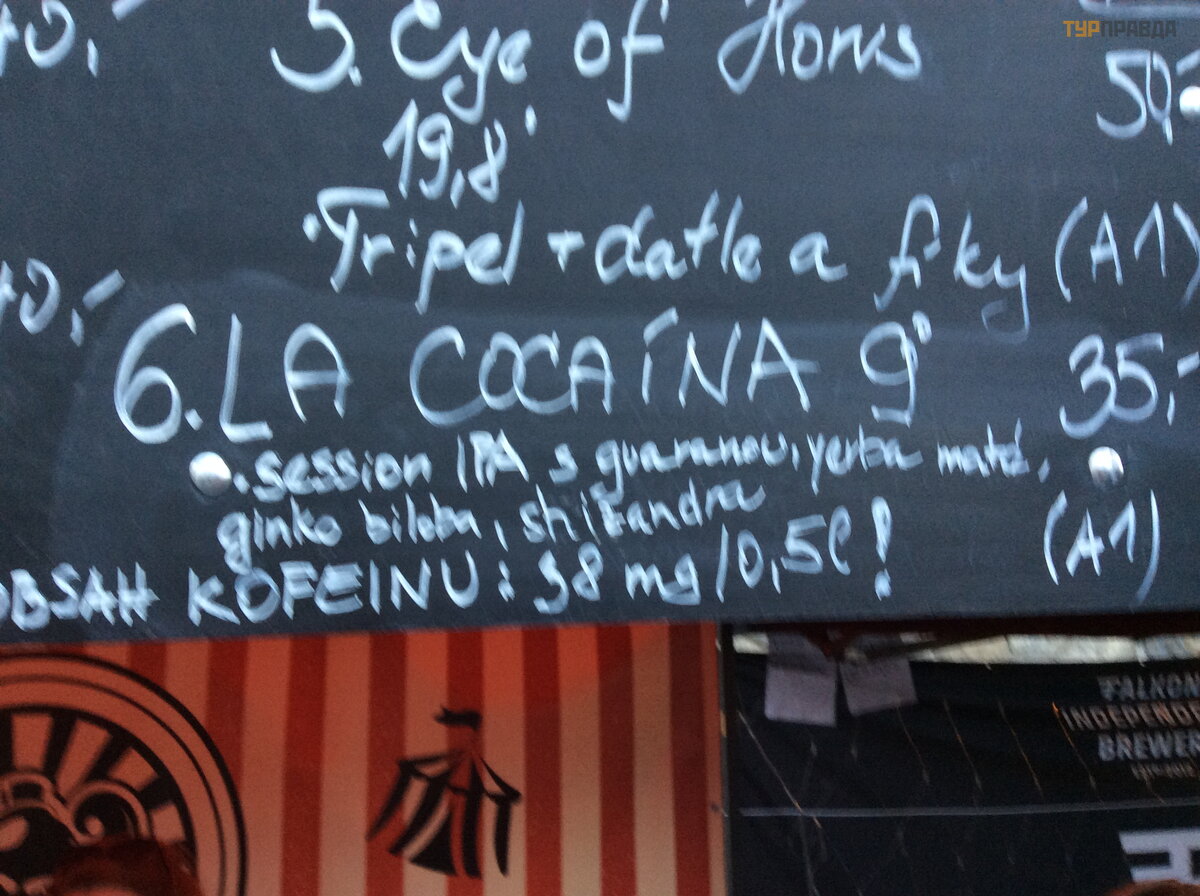 ТУРПРАВДА
40,-
5. Eye of Horus 50,-
19,8°
• Tripel + datle a fíky (A1)
40,-
6. LA COCAÍNA 9° 35,-
• SESSION IPA s guaranou, yerba maté,
ginko biloba, shizandra (A1)
OBSAH KOFEINU: 38 mg/0,5l!
FALKON
INDEPENDE
BREWE